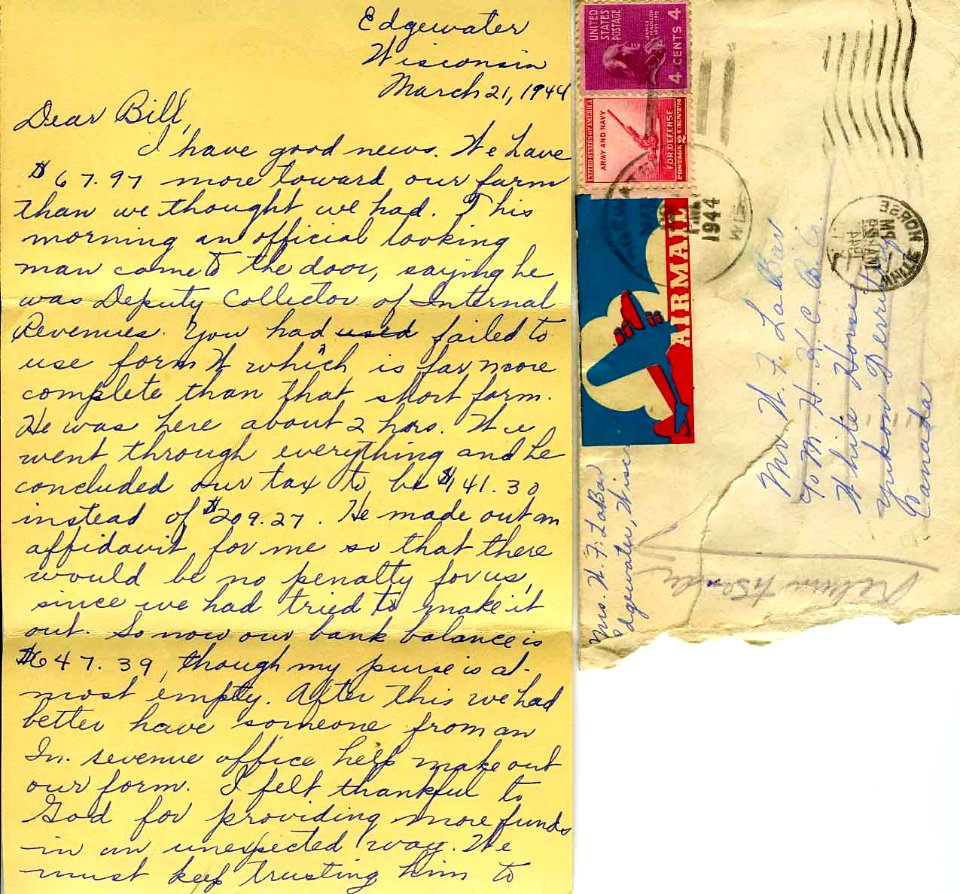 Edgewater
Wisconsin
March 21, 1944
Dear Bill,
I have good news. We have
$67.97 more toward our farm
than we thought we had. This
morning an official looking
man came to the door, saying he
was Deputy Collector of Internal
Revenues. You had used failed to
use form W which is far more
complete than that short form.
He was here about 2 hrs. We
went through everything and he
concluded our tax to be $141.30
instead of $209.27. He made out an
affidavit for me so that there
would be no penalty for us,
since we had tried to make it
out. So now our bank balance is
$647.39, though my purse is al-
most empty. After this we had
better have someone from an
In. revenue office help make out
our form. I felt thankful to
God for providing more funds
in an unexpected way. We
must keep trusting him to
UNITED STATES POSTAGE
4 CENTS 4
UNITED STATES OF AMERICA
ARMY AND NAVY
FOR DEFENSE
POSTAGE 2 CENTS
1944
WIS
AIRMAIL
WHITE HORSE
Mr. W. F. LaBar
c/o M. H. K. C. B. Co.
White Horse
Yukon Territory
Canada
Mrs. W. F. LaBar
Edgewater, Wisc
Return to Sender